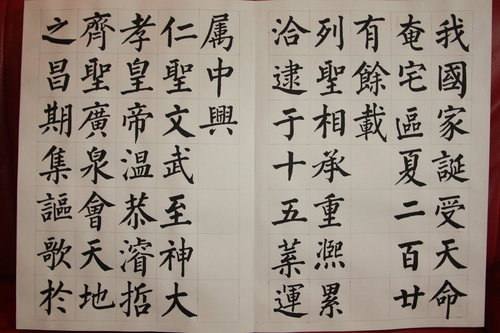 我國家誕受天命
奄宅區夏二百廿
有餘載
列聖相承重熈累
洽逮于十五葉運
属中興
仁聖文武至神大
孝皇帝温恭濬哲
齊聖廣泉會天地
之昌期集謳歌於